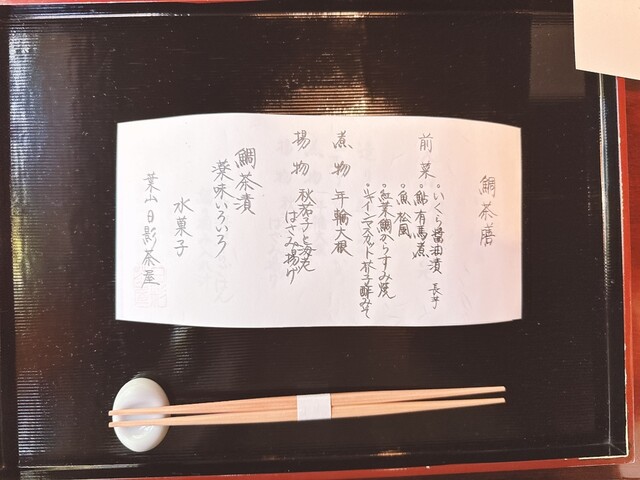 鯛茶膳
前菜
・いくら醤油漬 長芋
・鮎有馬煮
・魚松風
・紅葉鯛からすみ焼
・シャインマスカット芥子酢みそ
煮物 年輪大根
揚物 秋茄子と海老
はさみ揚げ
鯛茶漬
薬味いろいろ
水菓子
葉山日影茶屋